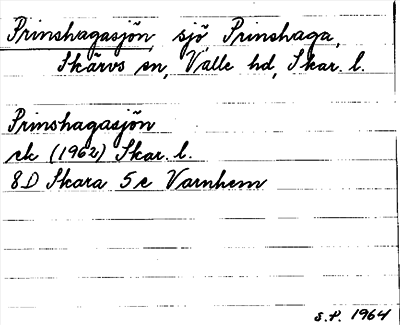 Prinshagasjön, sjö Prinshaga,
Skärvs sn, Valle hd, Skar. l.
Prinshagasjön
ek (1962) Skar. l.
8D Skara 5e Varnhem
S.P. 1964